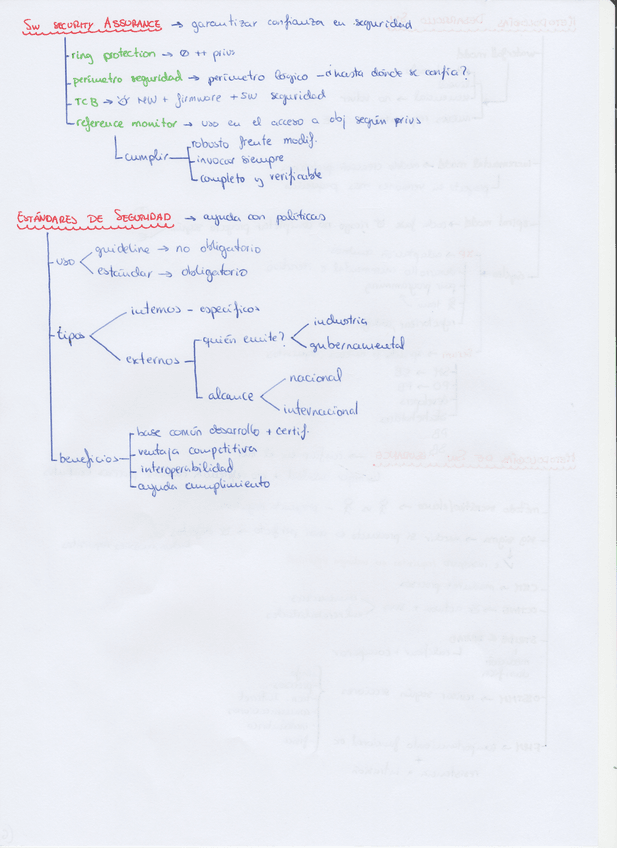 SW SECURITY ASSURANCE → garantizar confianza en seguridad
ring protection → 0 ++ privs
perímetro seguridad → perímetro lógico - ¿hasta dónde se confía?
TCB → HW + firmware + SW seguridad
reference monitor → uso en el acceso a obj según privs
cumplir
robusto frente modif.
invocar siempre
completo y verificable
ESTÁNDARES DE SEGURIDAD → ayuda con políticas
uso
guideline → no obligatorio
estándar → obligatorio
tipos
internos - específicos
externos
quién emite?
industria
gubernamental
alcance
nacional
internacional
beneficios
base común desarrollo + certif.
ventaja competitiva
interoperabilidad
ayuda cumplimiento